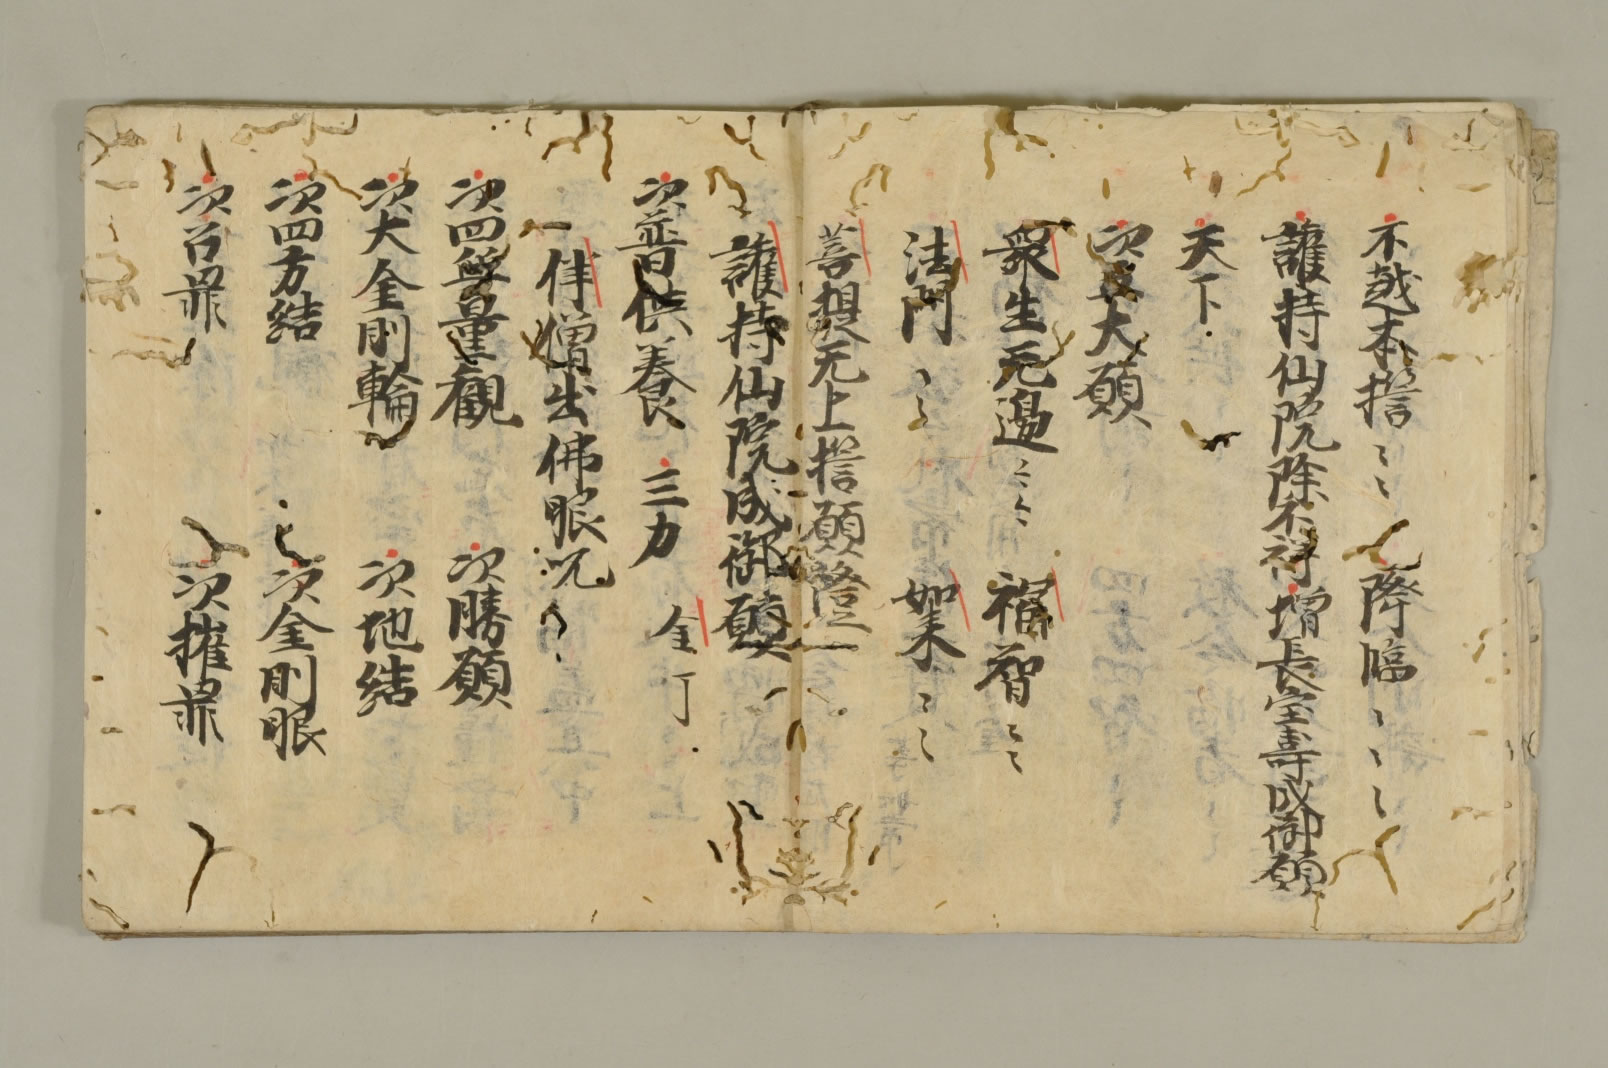 不越本誓〻〻 降臨〻〻〻
護持仙院除不祥増長宝壽成御願
天下
次五大願
衆生无邉〻〻 福智〻〻
法門〻〻 如来〻〻
菩提无上誓願證
護持仙院成御願
次普供養 三力 金丁
伴僧出佛眼咒
次四無量觀 次勝願
次大金剛輪 次地結
次四方結 次金剛眼
次召罪 次摧罪